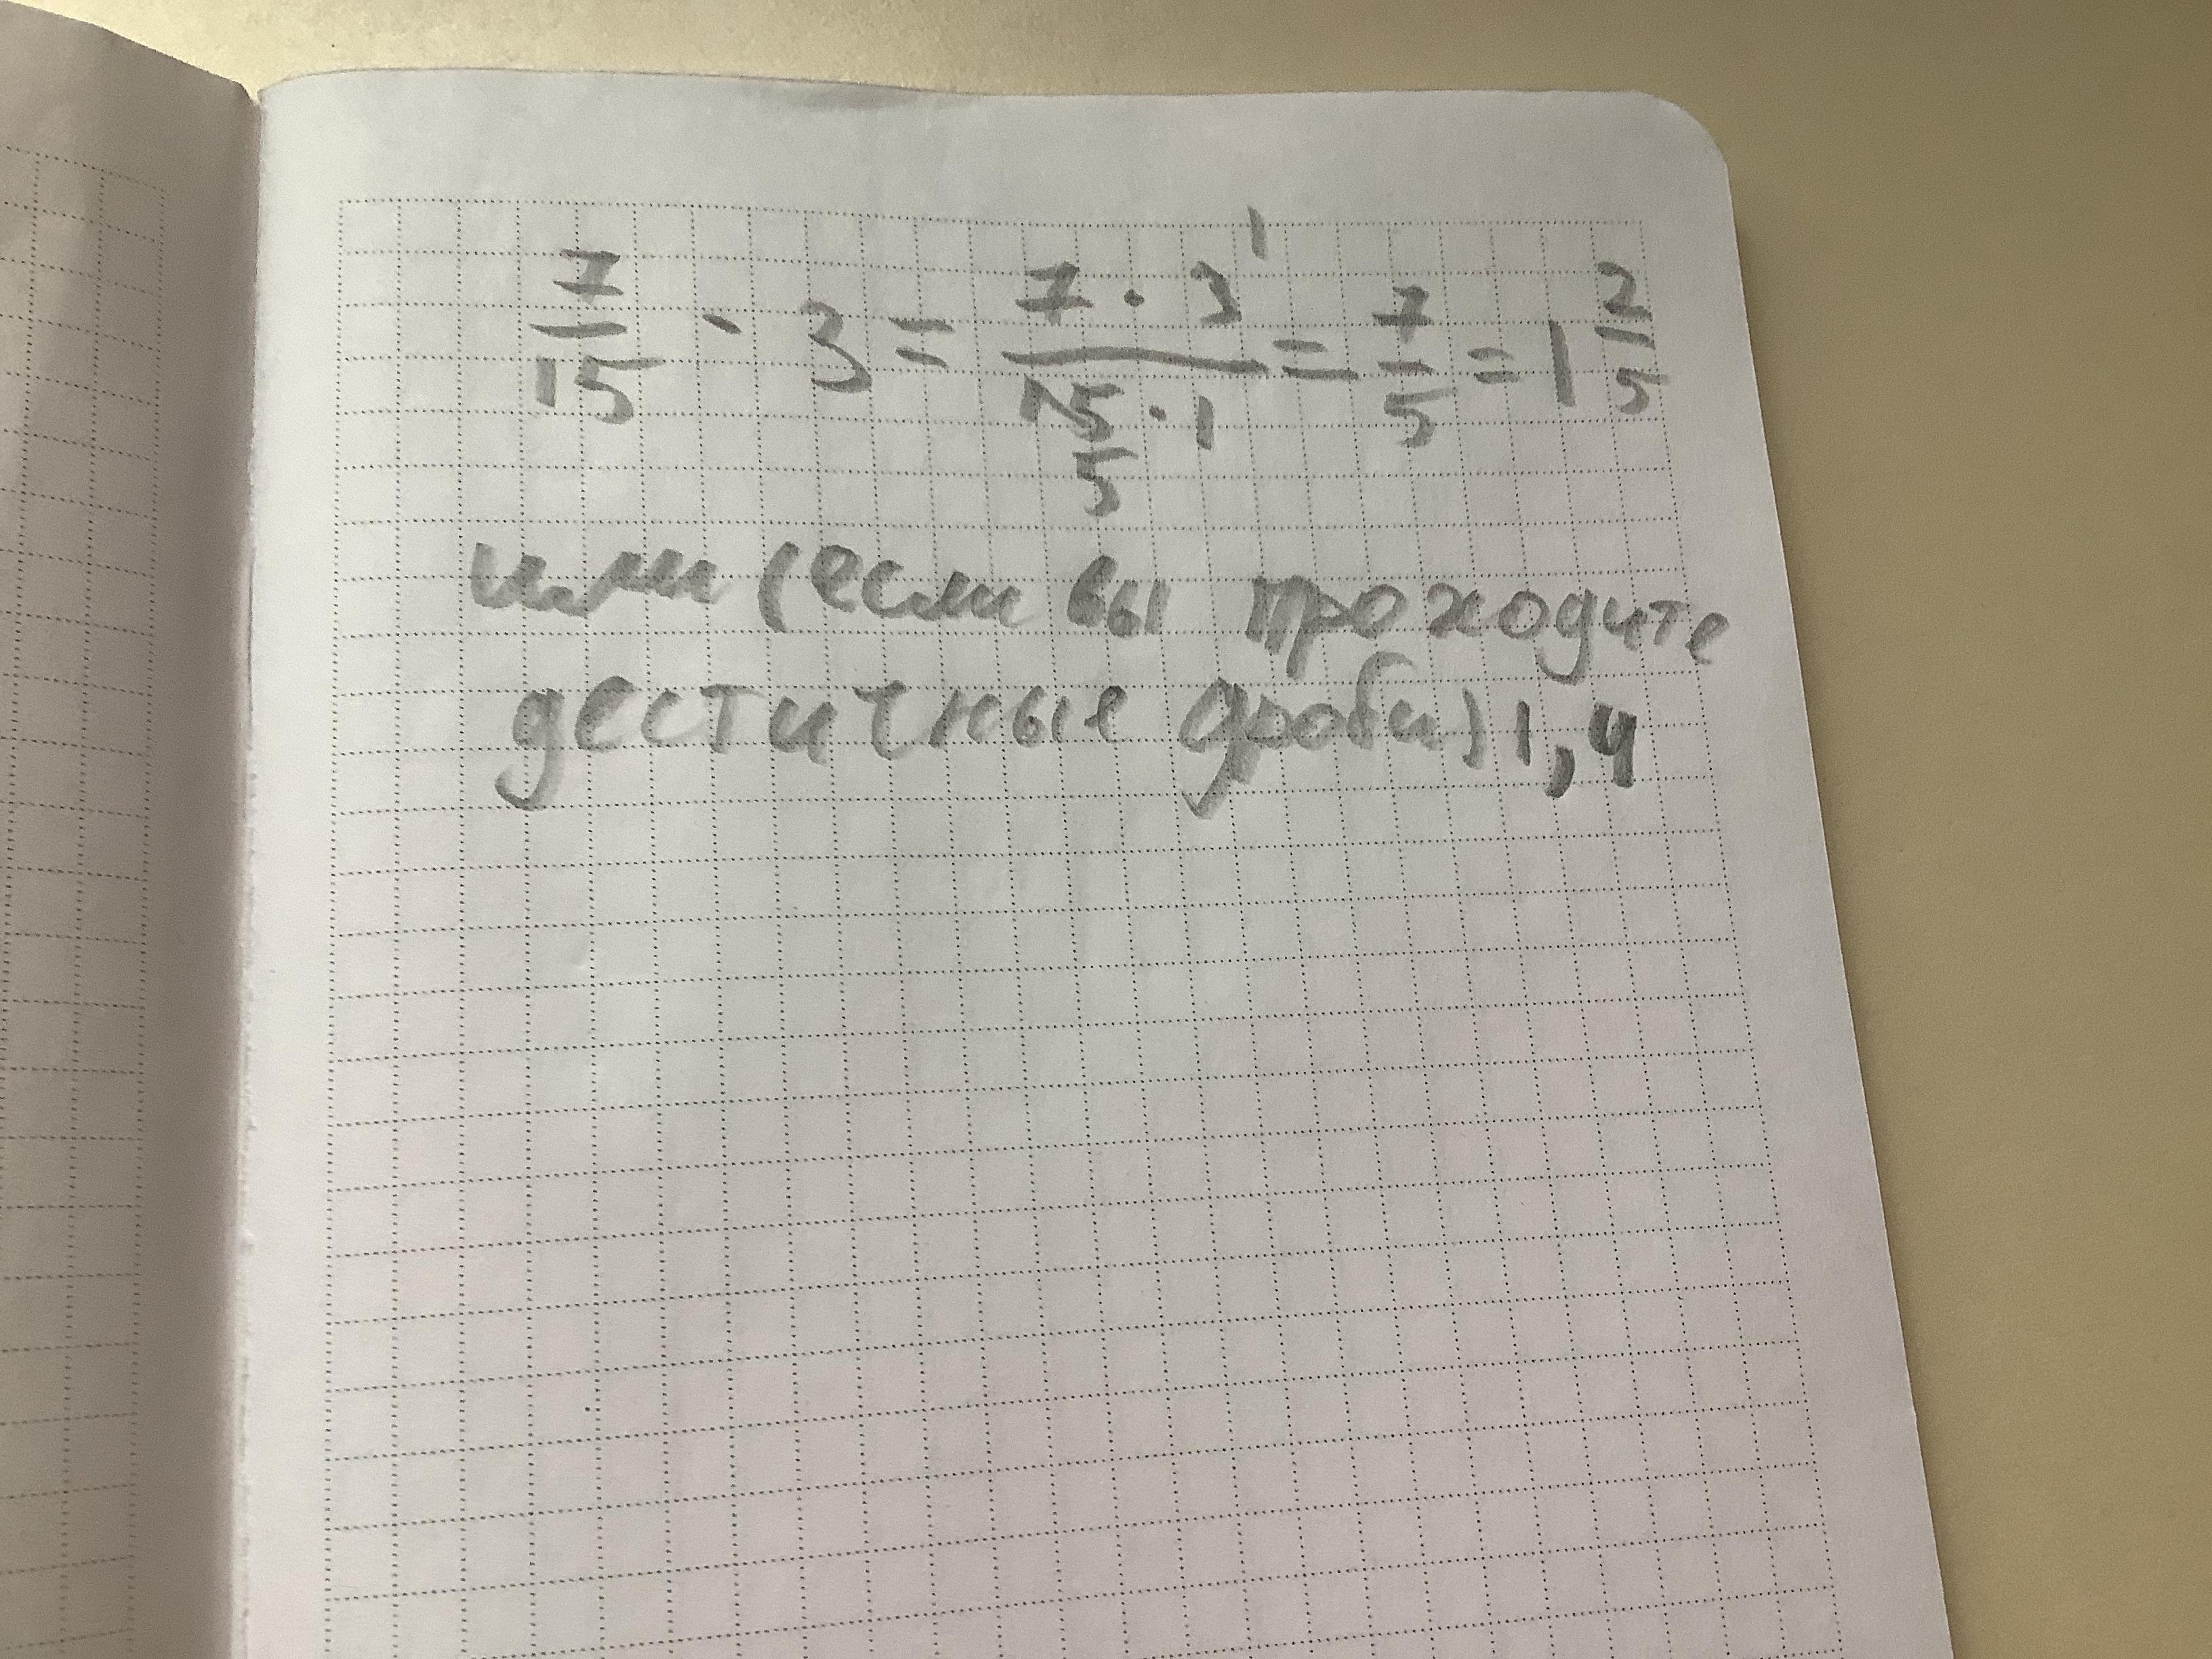 7/15 · 3 = 7 · 3 1 / 15 5 · 1 = 7/5 = 1 2/5
или (если вы проходите
дестичные дроби) 1,4